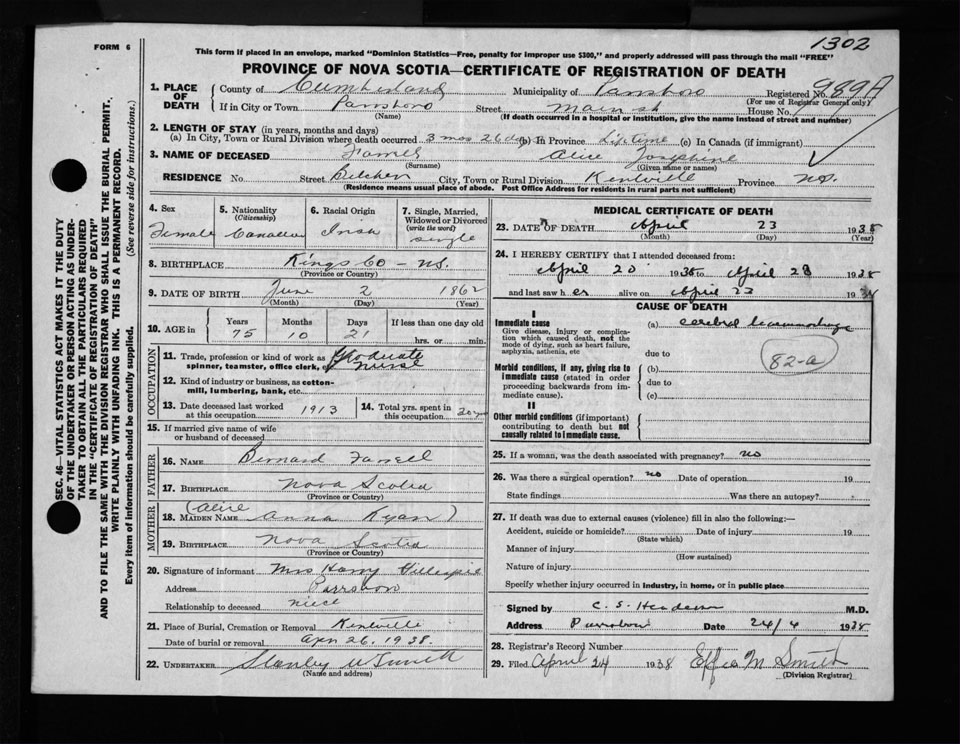 1302
FORM 6
This form if placed in an envelope, marked "Dominion Statistics—Free, penalty for improper use $300," and properly addressed will pass through the mail "FREE"
PROVINCE OF NOVA SCOTIA—CERTIFICATE OF REGISTRATION OF DEATH
989A
1. PLACE OF DEATH
County of Cumberland Municipality of Parrsboro Registered No.
(For use of Registrar General only)
If in City or Town Parrsboro Street Main st House No.
(Name) (If death occurred in a hospital or institution, give the name instead of street and number)
2. LENGTH OF STAY (in years, months and days)
(a) In City, Town or Rural Division where death occurred 3 mos 26 days (b) In Province Lifetime (c) In Canada (if immigrant)
3. NAME OF DECEASED Alice Josephine
(Surname) (Given name or names)
RESIDENCE No. Street Belcher City, Town or Rural Division Kentville Province N.S.
(Residence means usual place of abode. Post Office Address for residents in rural parts not sufficient)
4. Sex
Female
5. Nationality (Citizenship)
Canadian
6. Racial Origin
Irish
7. Single, Married, Widowed or Divorced (write the word)
single
8. BIRTHPLACE Kings Co - NS.
(Province or Country)
9. DATE OF BIRTH June 2 1862
(Month) (Day) (Year)
10. AGE in Years Months Days If less than one day old
75 10 21 hrs. or min.
OCCUPATION
11. Trade, profession or kind of work as spinner, teamster, office clerk, etc. Graduate nurse
12. Kind of industry or business, as cotton-mill, lumbering, bank, etc.
13. Date deceased last worked at this occupation 1913 14. Total yrs. spent in this occupation
15. If married give name of wife or husband of deceased
FATHER
16. NAME Bernard Farrell
17. BIRTHPLACE Nova Scotia
(Province or Country)
MOTHER
18. MAIDEN NAME (Alice Anna Ryan)
19. BIRTHPLACE Nova Scotia
(Province or Country)
20. Signature of informant Mrs Harry Gillespie
Address Parrsboro
Relationship to deceased niece
21. Place of Burial, Cremation or Removal Kentville
Date of burial or removal Apr 26, 1938.
22. UNDERTAKER Stanley
(Name and address)
MEDICAL CERTIFICATE OF DEATH
23. DATE OF DEATH April 23 1938
(Month) (Day) (Year)
24. I HEREBY CERTIFY that I attended deceased from:
April 20 1938 to April 23 1938
and last saw her alive on April 23 19
CAUSE OF DEATH
I
Immediate cause
Give disease, injury or complication which caused death, not the mode of dying, such as heart failure, asphyxia, asthenia, etc
(a) cerebral
due to
Morbid conditions, if any, giving rise to immediate cause (stated in order proceeding backwards from immediate cause).
(b)
82-a
due to
(c)
II
Other morbid conditions (if important) contributing to death but not causally related to immediate cause.
25. If a woman, was the death associated with pregnancy? no
26. Was there a surgical operation? no Date of operation 19
State findings Was there an autopsy?
27. If death was due to external causes (violence) fill in also the following:—
Accident, suicide or homicide? Date of injury 19
(State which)
Manner of injury
(How sustained)
Nature of injury
Specify whether injury occurred in industry, in home, or in public place
Signed by C. S. M.D.
Address Parrsboro Date 24/4 1938
28. Registrar's Record Number
29. Filed April 24 1938 Effie M Smith
(Division Registrar)
SEC. 46—VITAL STATISTICS ACT MAKES IT THE DUTY
OF THE UNDERTAKER OR PERSON ACTING AS UNDERTAKER TO OBTAIN ALL THE PARTICULARS REQUIRED
IN THE "CERTIFICATE OF REGISTRATION OF DEATH"
AND TO FILE THE SAME WITH THE DIVISION REGISTRAR WHO SHALL ISSUE THE BURIAL PERMIT.
WRITE PLAINLY WITH UNFADING INK. THIS IS A PERMANENT RECORD.
Every item of information should be carefully supplied. (See reverse side for instructions.)